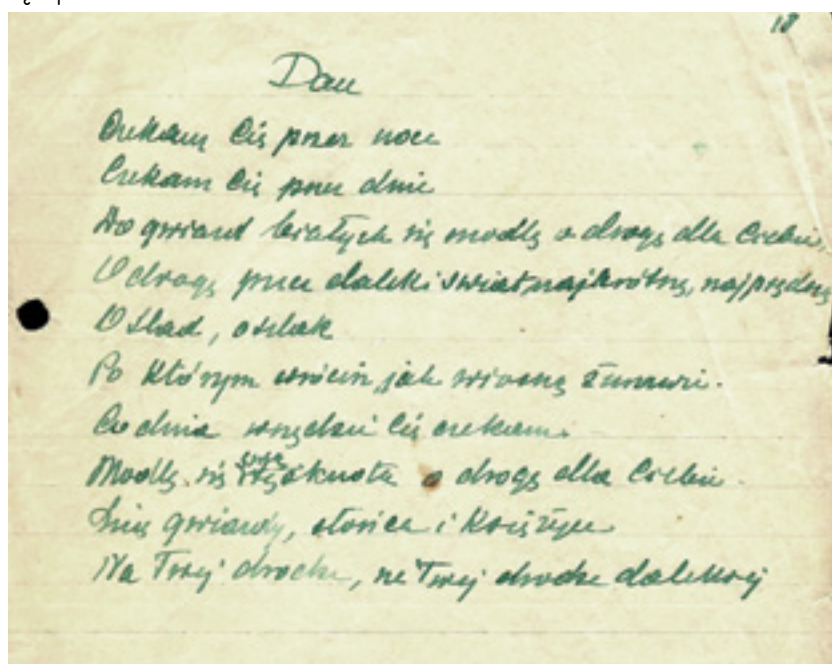 18
Czekam Cię przez noce
Czekam Cię przez dnie
Do gwiazd białych się modlę o drogę dla Ciebie
O drogę przez daleki świat najkrótszą, najprędszą
O ślad, o szlak
Po którym wrócisz, jak wiosną żurawie.
Co dnia wszędzie Cię czekam.
Modlę się tęsknotą o drogę dla Ciebie.
gwiazdy, słońca i księżyce
Na Twej drodze, na Twej drodze dalekiej